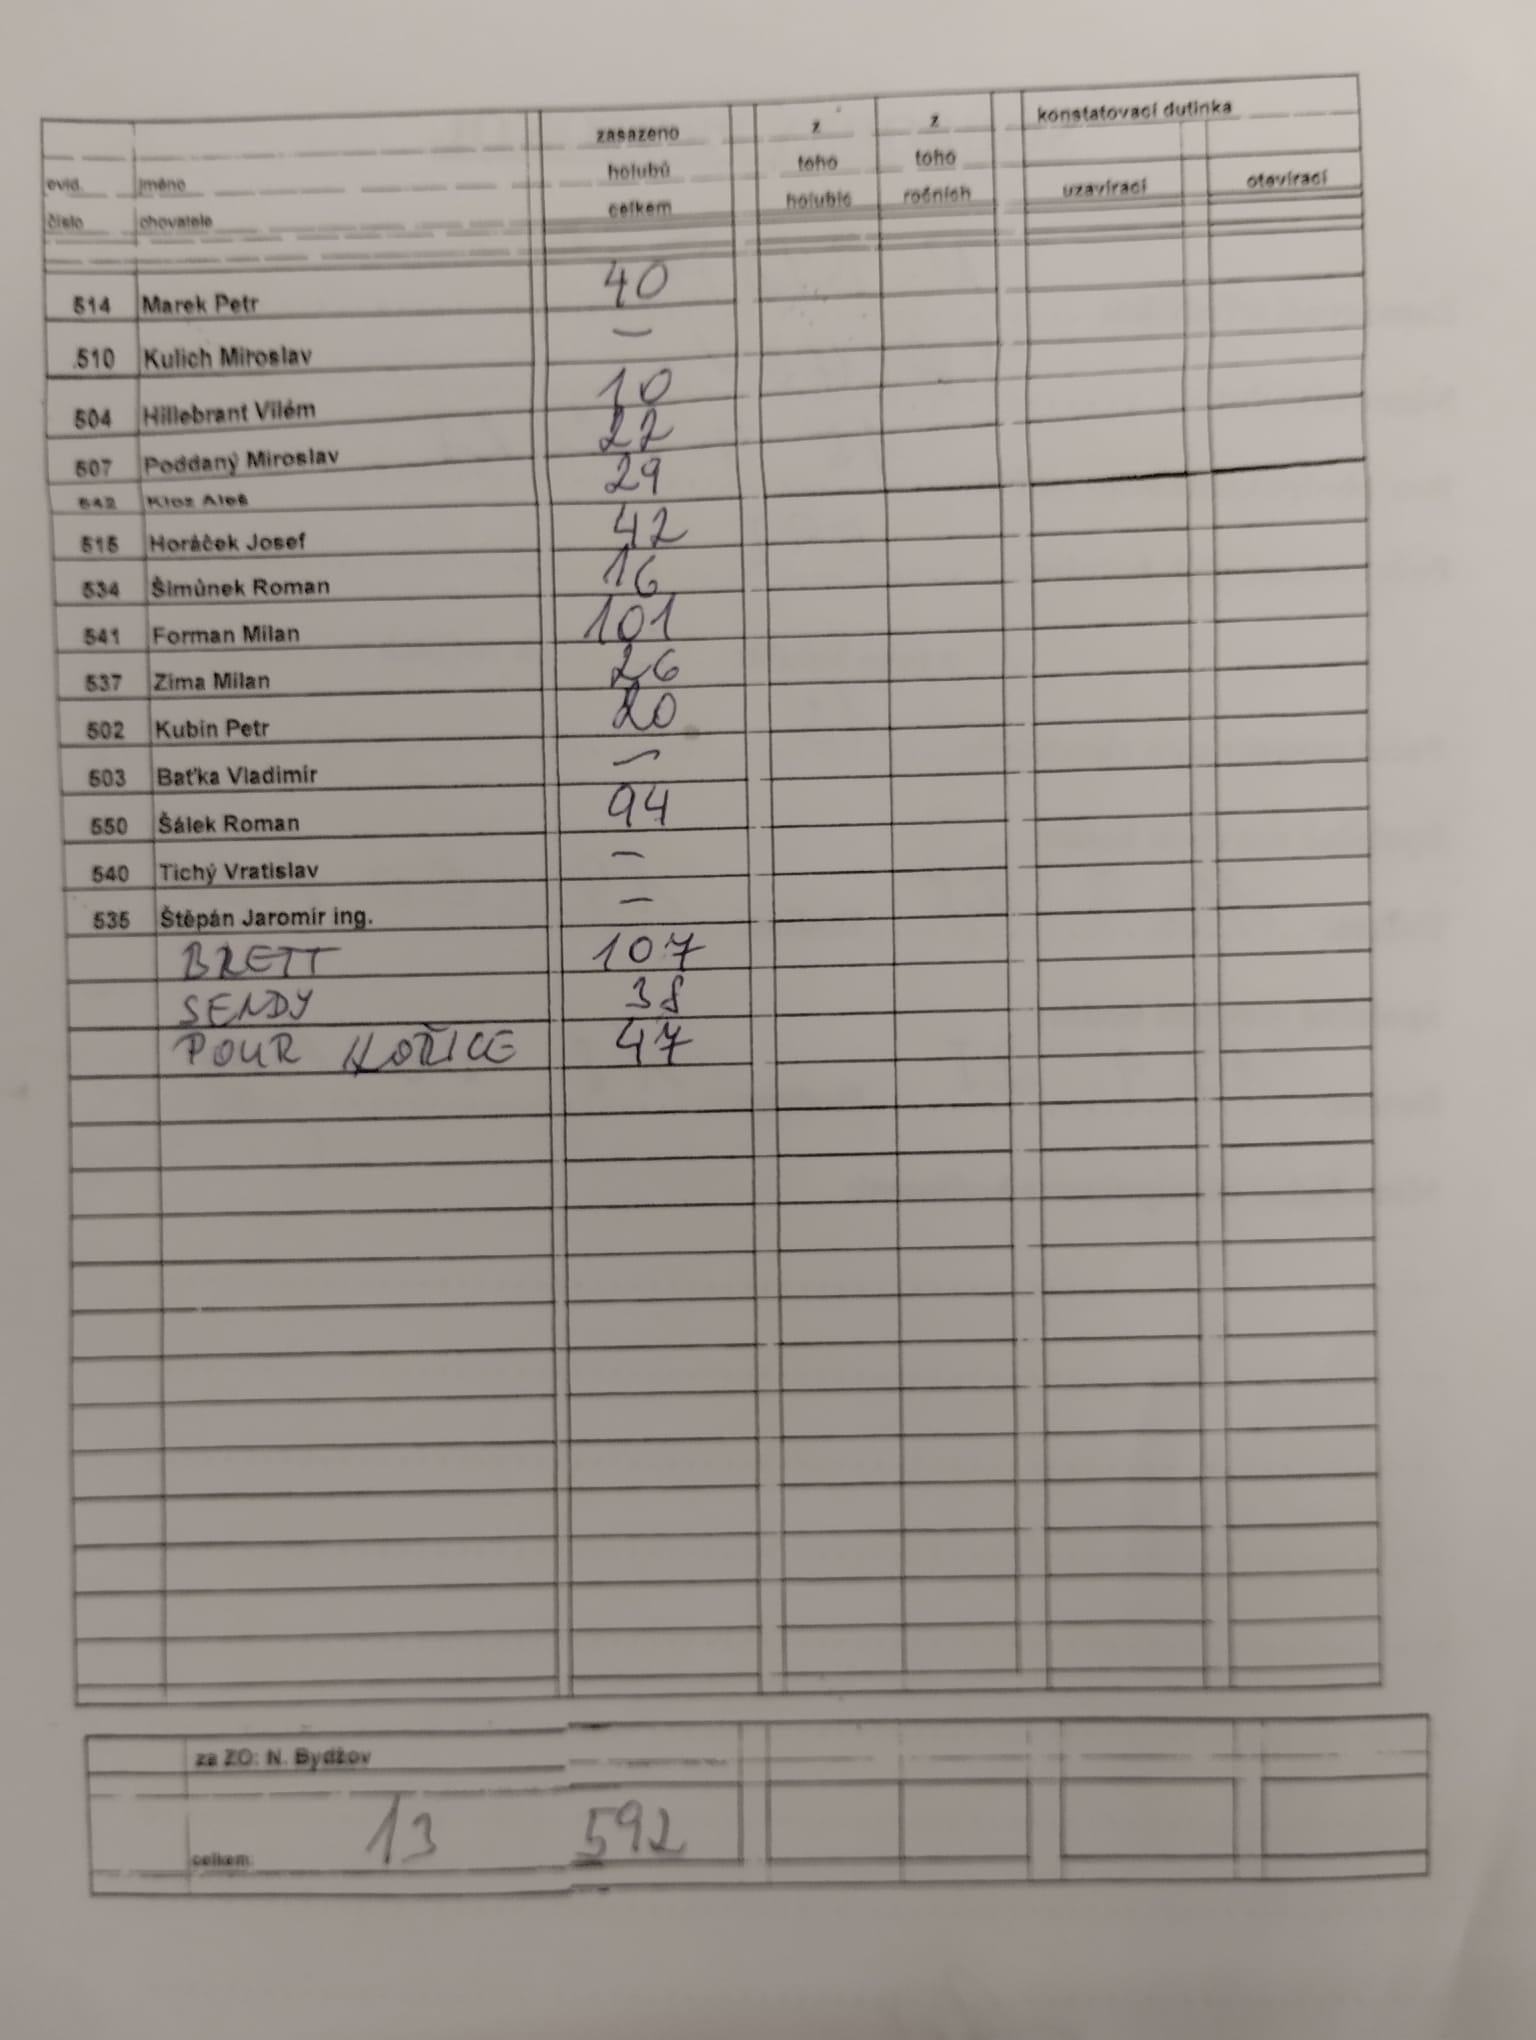 konstatovací dutinka
zasazeno z z
holubů toho toho
evid. jméno celkem holubic ročních uzavírací otevírací
číslo chovatele
514 Marek Petr 40
510 Kulich Miroslav –
504 Hillebrant Vilém 10
507 Poddaný Miroslav 22
542 Kloz Aleš 29
515 Horáček Josef 42
534 Šimůnek Roman 16
541 Forman Milan 101
537 Zima Milan 26
502 Kubín Petr 20
503 Baťka Vladimír –
550 Šálek Roman 94
540 Tichý Vratislav –
535 Štěpán Jaromír ing. –
BRETT 107
SENDY 38
POUR HOŘICE 47
za ZO: N. Bydžov
celkem: 13 592